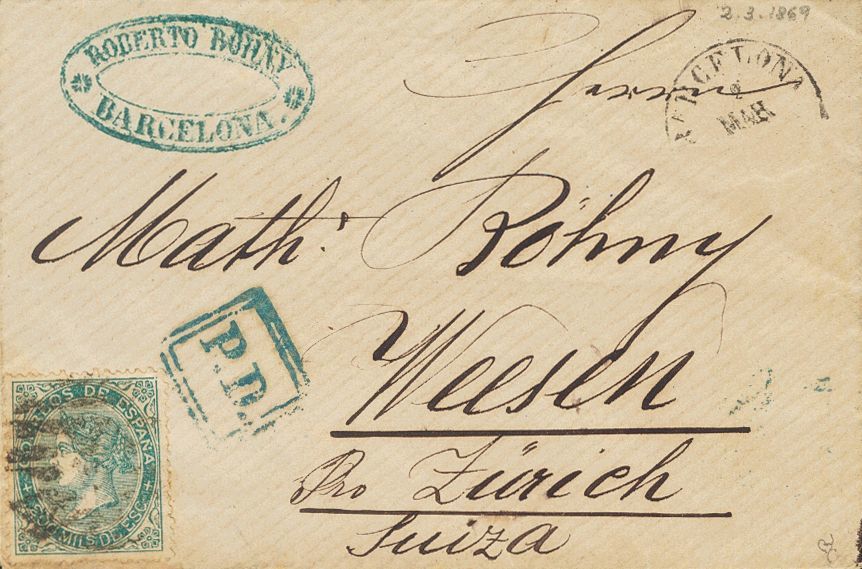 2.3.1869
ROBERTO BÖHNY
BARCELONA.
BARCELONA
2
MAR
Herrn
Math. Böhny
P.D.
Weesen
Pro Zürich
Suiza
CORREOS DE ESPAÑA
200 MILS DE ESCO